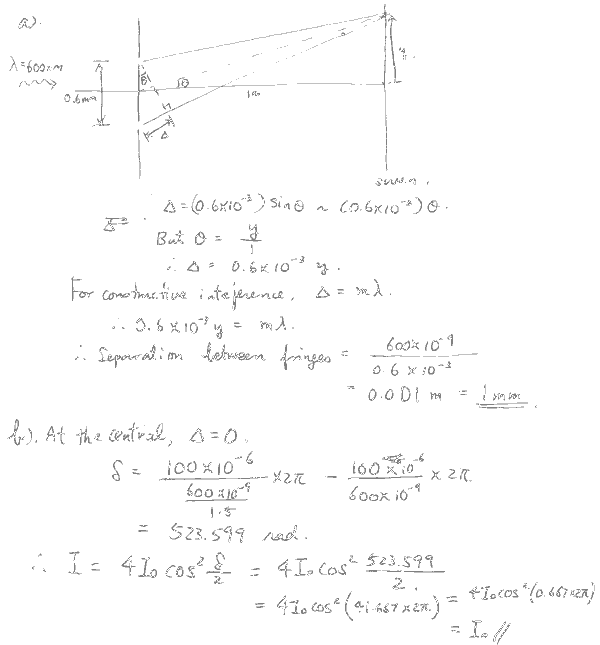 a).
λ=600nm
0.6mm
θ
θ
Δ
1m
y
screen.
∴ Δ=(0.6×10⁻³) sinθ ~ (0.6×10⁻³)θ.
But θ = y/1
∴ Δ = 0.6×10⁻³ y.
For constructive inteference, Δ = mλ.
∴ 0.6×10⁻³y = mλ.
∴ Separation between fringes = 600×10⁻⁹ / 0.6 × 10⁻³
= 0.001 m = 1mm.
b). At the central, Δ=0.
δ = 100×10⁻⁶ / (600×10⁻⁹ / 1.5) ×2π − 100×10⁻⁶ / 600×10⁻⁹ × 2π
= 523.599 rad.
∴ I = 4I₀ cos² δ/2 = 4I₀ cos² 523.599/2.
= 4I₀ cos² (41.667×2π) = 4I₀cos²(0.667×2π)
= I₀ //